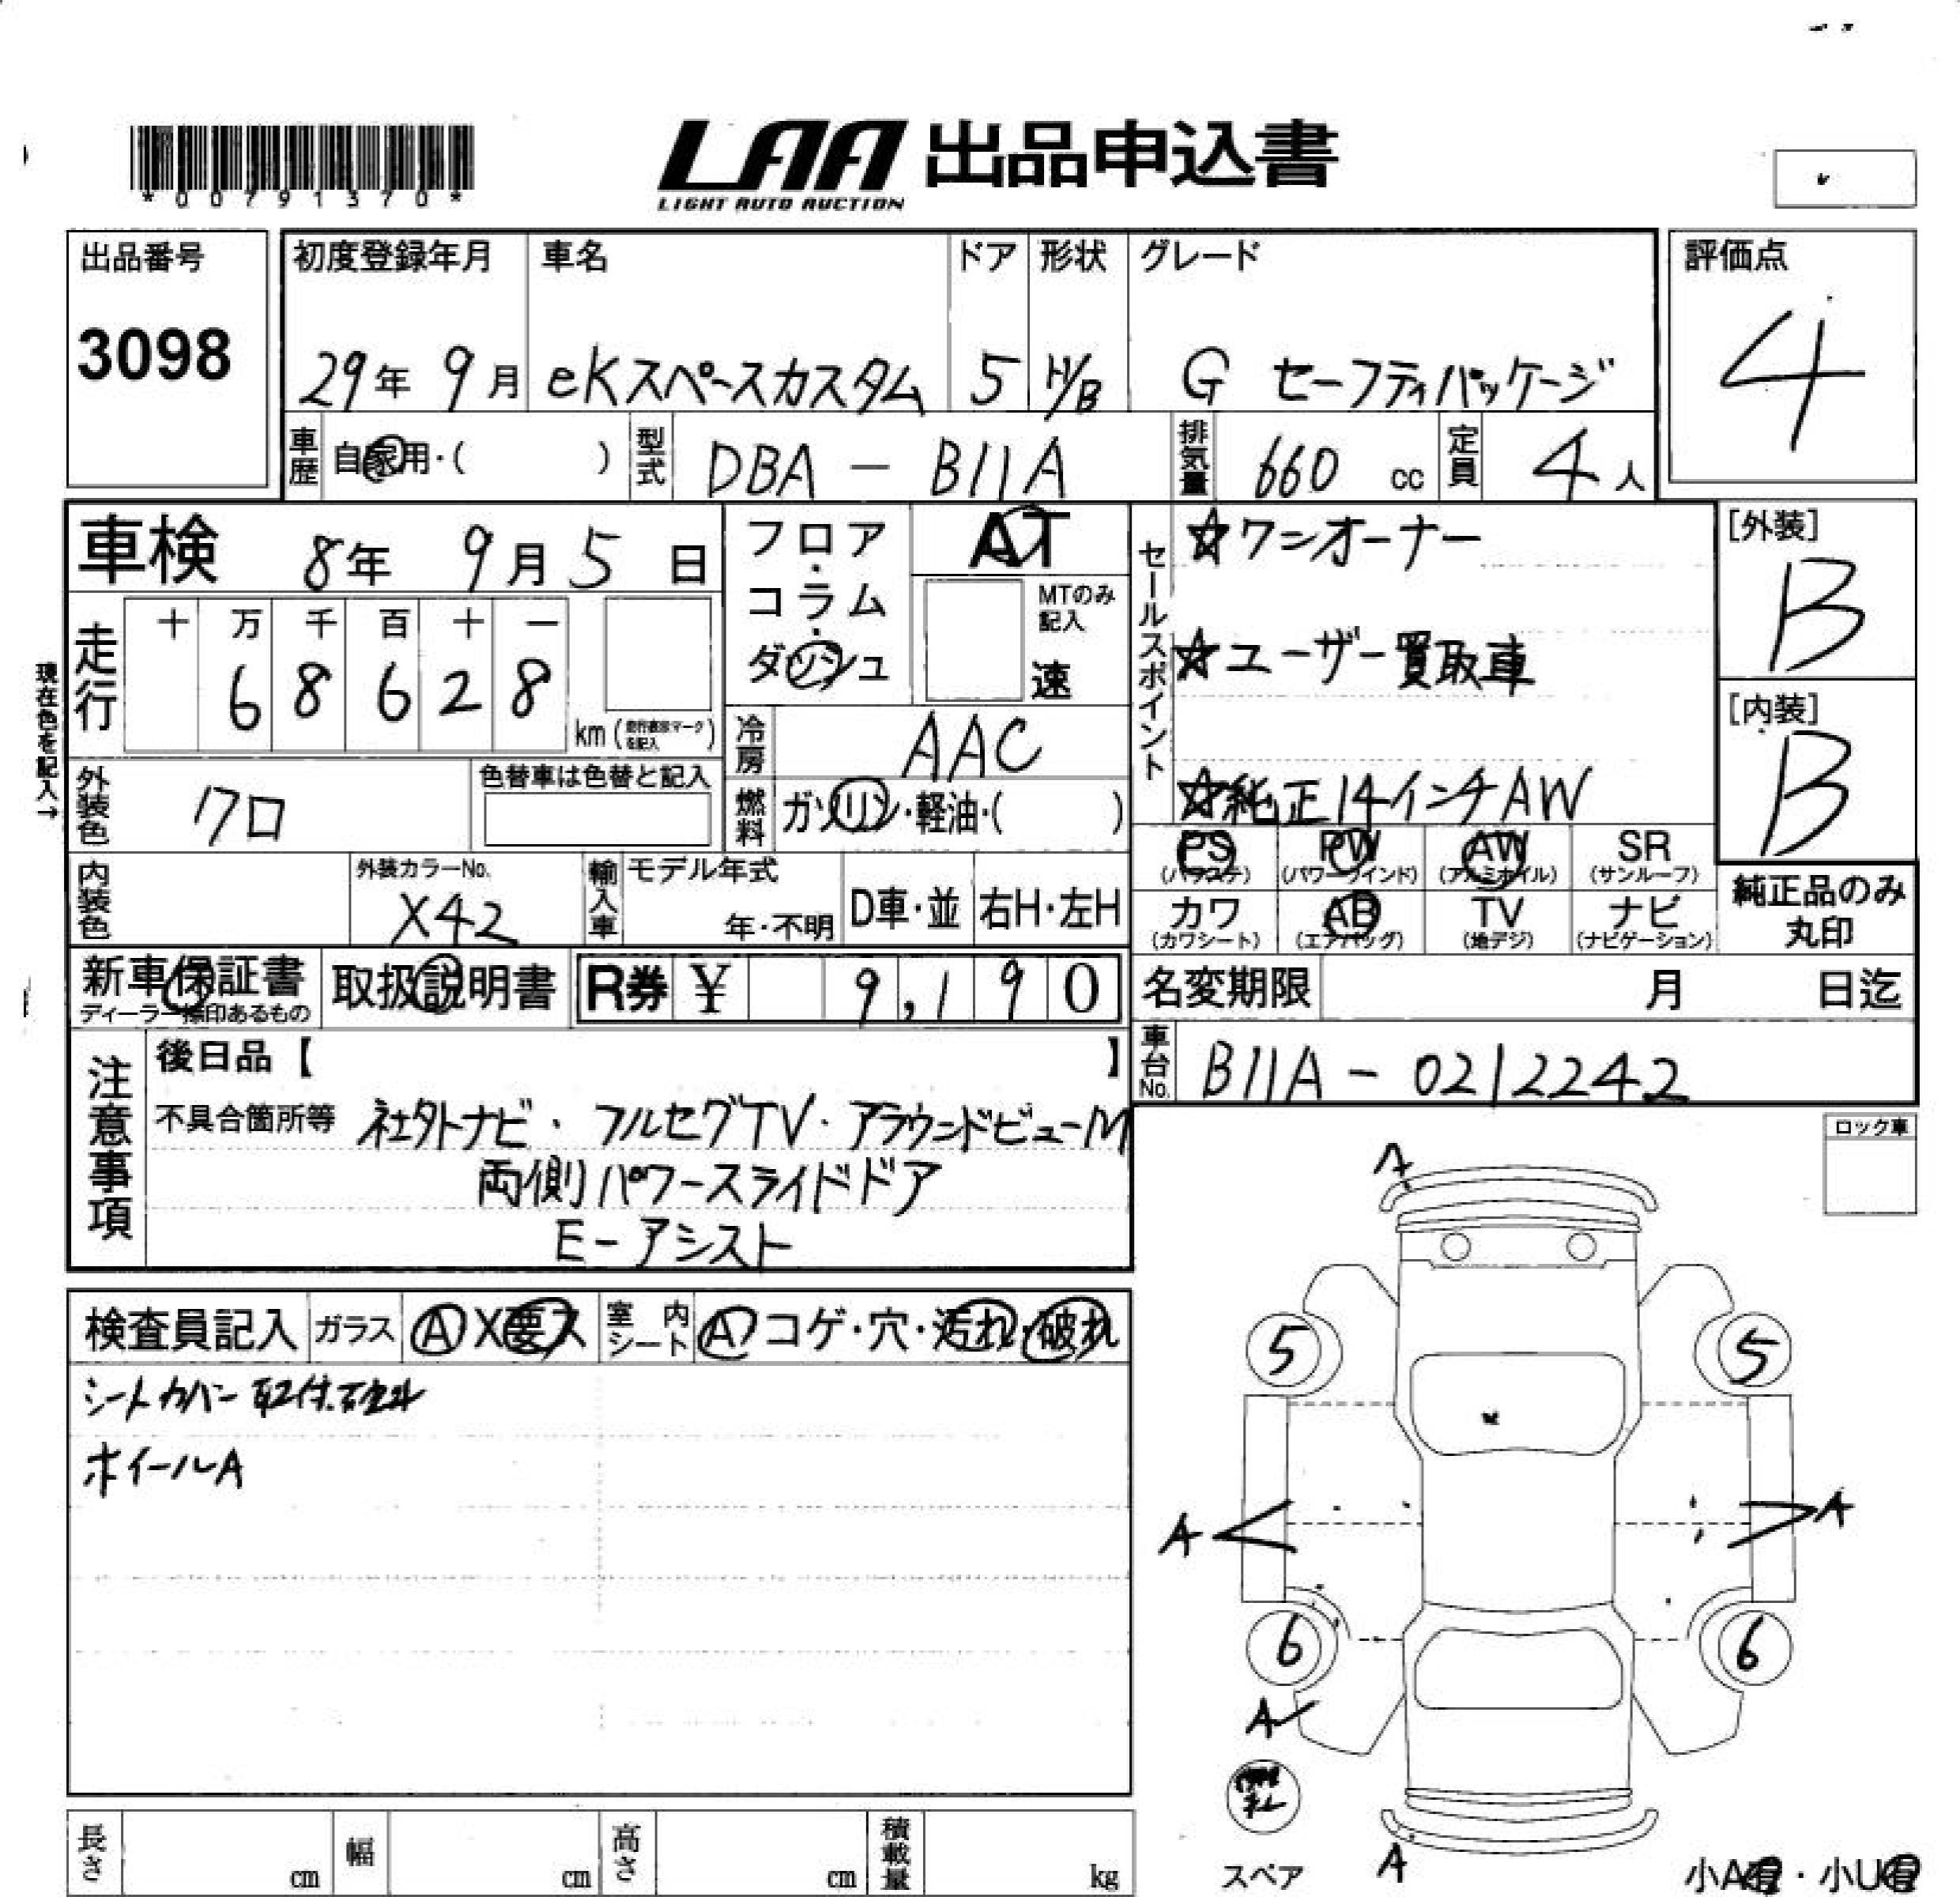 *00791370*
LAA 出品申込書
LIGHT AUTO AUCTION
出品番号
3098
初度登録年月 車名 ドア 形状 グレード
29年 9月 eKスペースカスタム 5 H/B G セーフティパッケージ
評価点
4
車歴 自家用・( ) 型式 DBA - B11A 排気量 660 cc 定員 4人
車検 8年 9月 5日
フロア・コラム・ダッシュ
AT
MTのみ記入
速
セールスポイント
☆ワンオーナー
☆ユーザー買取車
☆純正14インチAW
[外装]
B
[内装]
B
現在色を記入→
走行 十 万 千 百 十 一
6 8 6 2 8
km(
を記入 )
冷房 AAC
外装色 クロ
色替車は色替と記入
燃料 ガソリン・軽油・( )
PS (パワステ) PW (パワーウインド) AW (アルミホイル) SR (サンルーフ)
カワ (カワシート) AB (エアバッグ) TV (地デジ) ナビ (ナビゲーション)
純正品のみ
丸印
内装色 外装カラーNo. X42
輸入車 モデル年式 年・不明 D車・並 右H・左H
新車保証書 取扱説明書 R券 ¥ 9,190
ディーラー捺印あるもの
名変期限 月 日迄
車台No. B11A - 0212242
注意事項
後日品【 】
不具合箇所等 社外ナビ・フルセグTV・アラウンドビューM
両側パワースライドドア
E-アシスト
ロック車
検査員記入 ガラス A X要ス 室内シート A コゲ・穴・汚れ・破れ
シートカバー取付
ホイールA
A
5 5
A A
6 6
A
スペア
A
小A有・小U有
長さ cm 幅 cm 高さ cm 積載量 kg